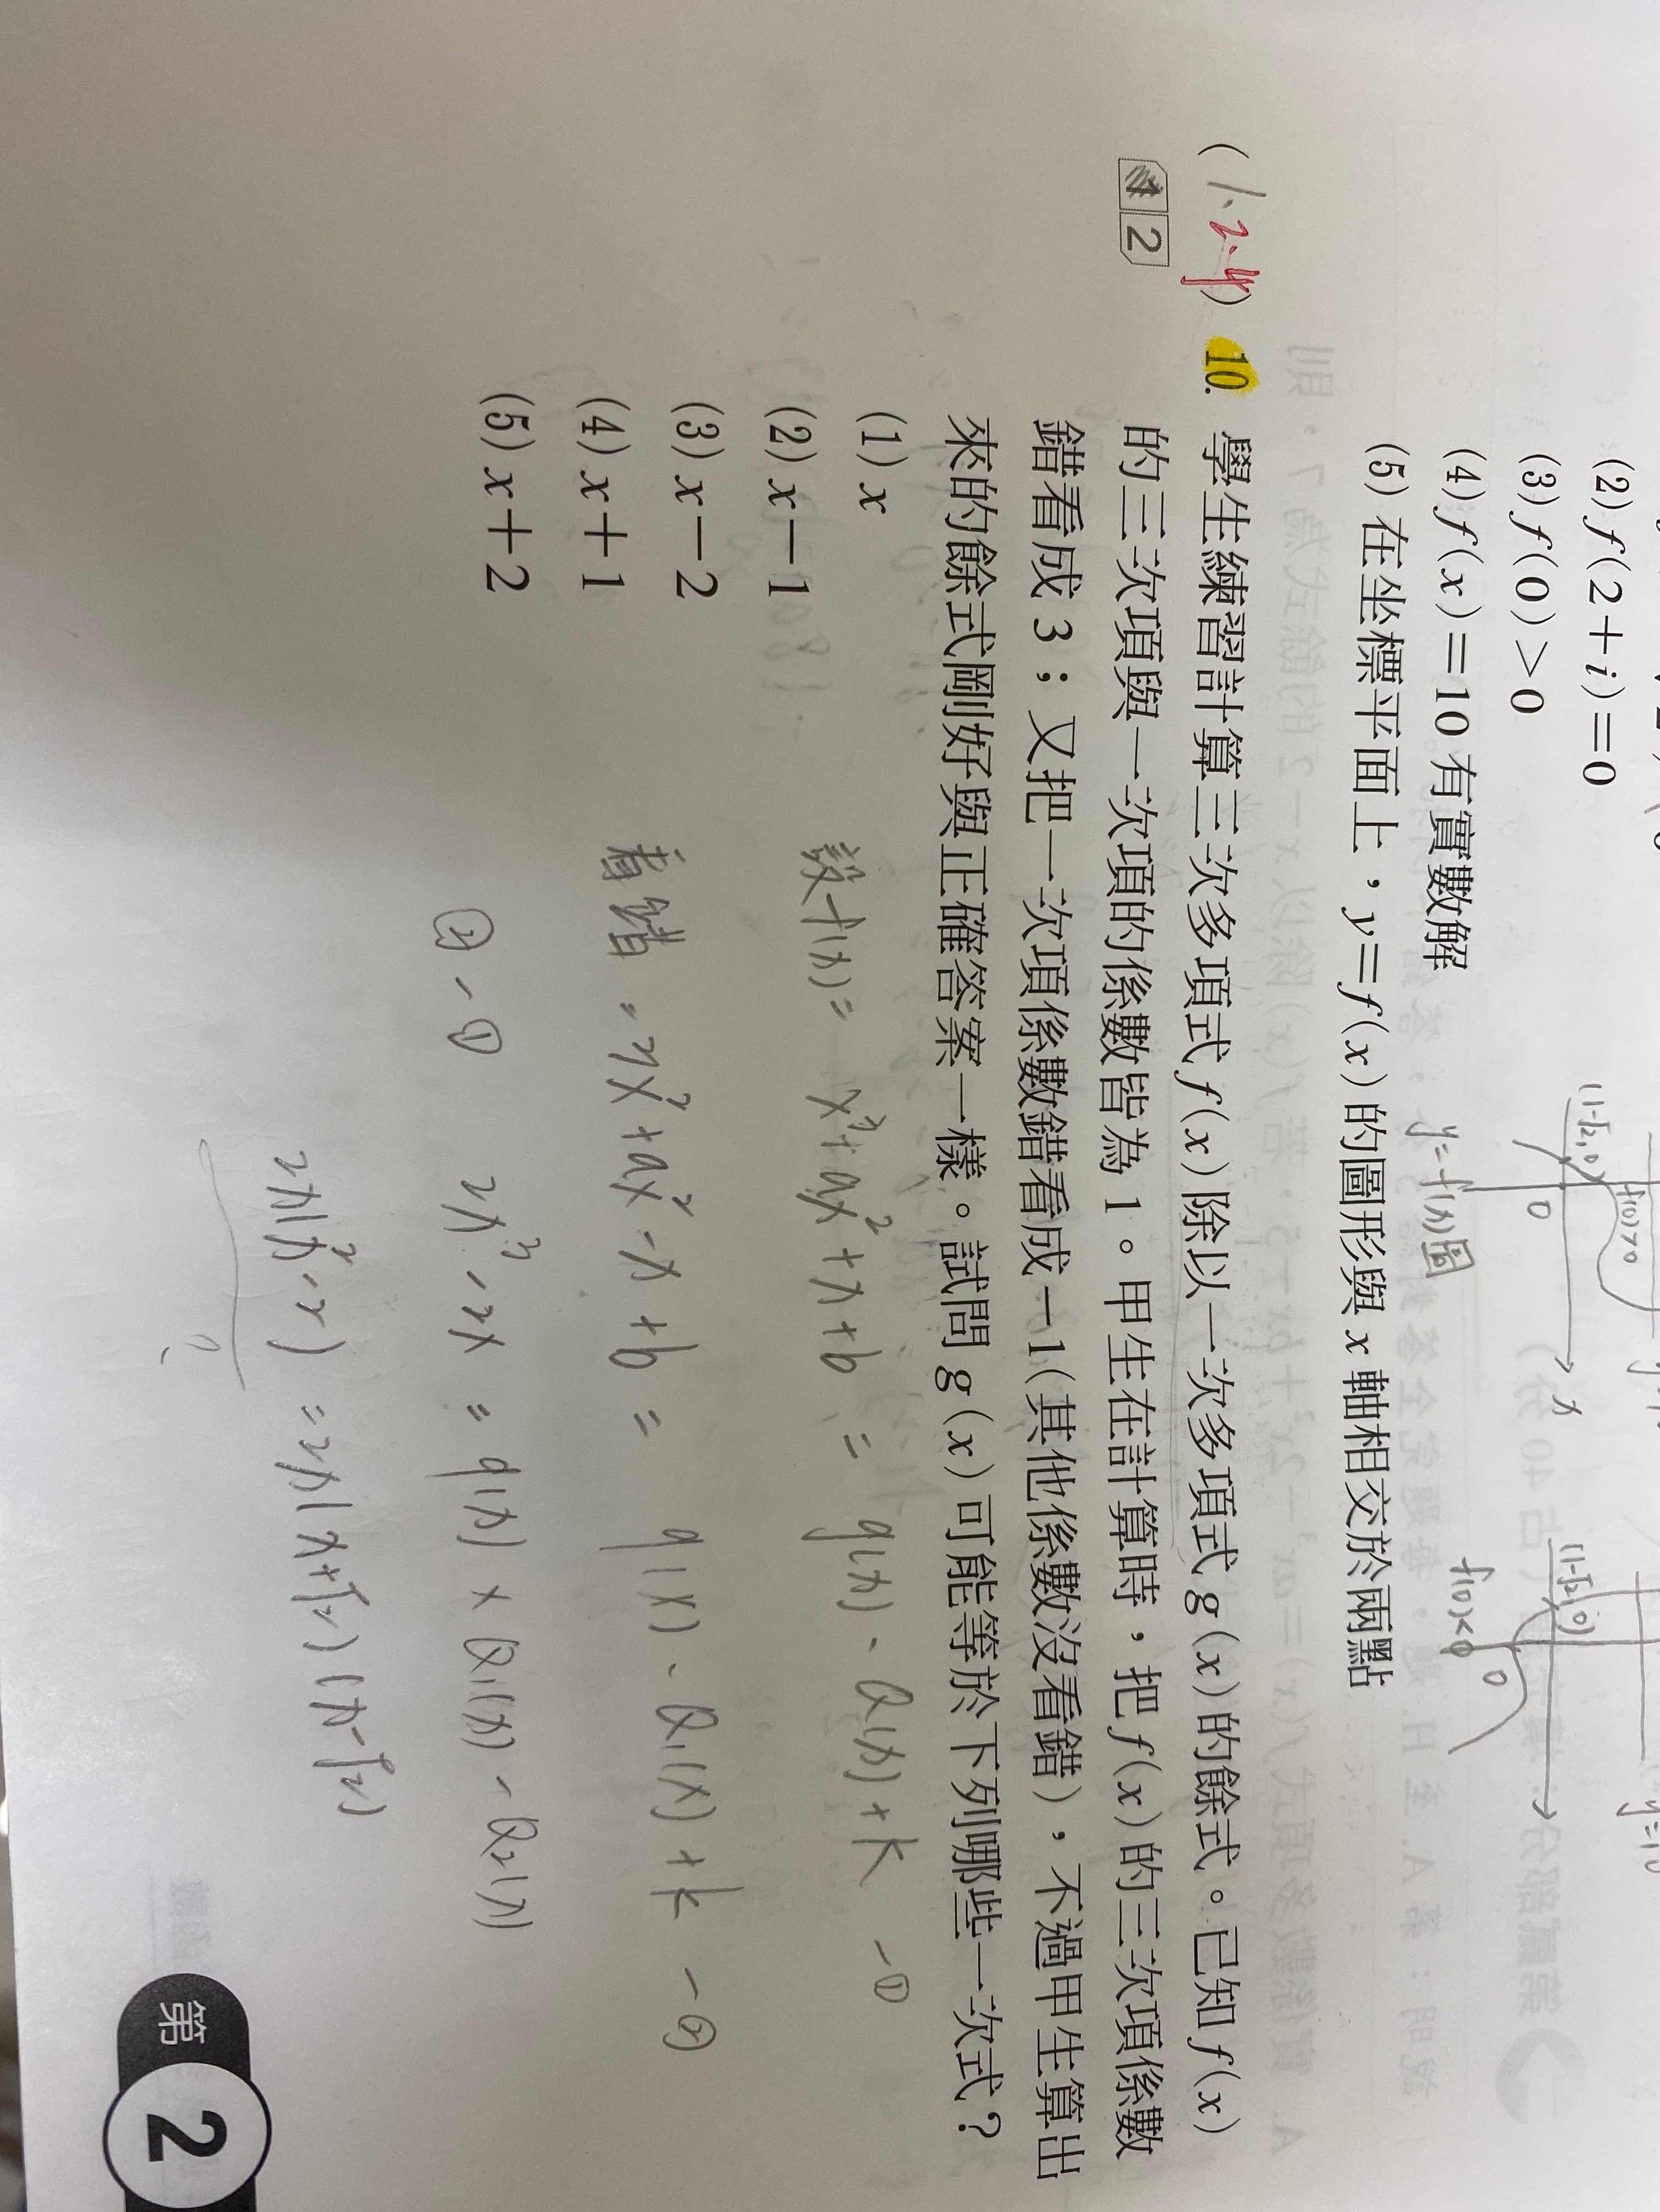 (2) f(2+i)=0
(3) f(0)>0
(4) f(x)=10有實數解
(5) 在坐標平面上，y=f(x)的圖形與x軸相交於兩點
(1-√2,0)
0
x
f(0)>0
y=f(x)圖
(1-√2,0)
0
f(0)<0
y=10
(1.2.4) 10. 學生練習計算三次多項式f(x)除以一次多項式g(x)的餘式。已知f(x)
1 2 的三次項與一次項的係數皆為1。甲生在計算時，把f(x)的三次項係數
錯看成3；又把一次項係數錯看成-1(其他係數沒看錯)，不過甲生算出
來的餘式剛好與正確答案一樣。試問g(x)可能等於下列哪些一次式？
(1) x
(2) x-1
(3) x-2
(4) x+1
(5) x+2
設f(x)= x³+ax²+x+b = q(x)·Q(x)+k -①
看錯 = 3x³+ax²-x+b = q(x)·Q₁(x)+k -②
②-① 2x³-2x = q(x)×Q₁(x)-Q₂(x)
2x(x²-1) = 2x(x+√2)(x-√2)
第
2